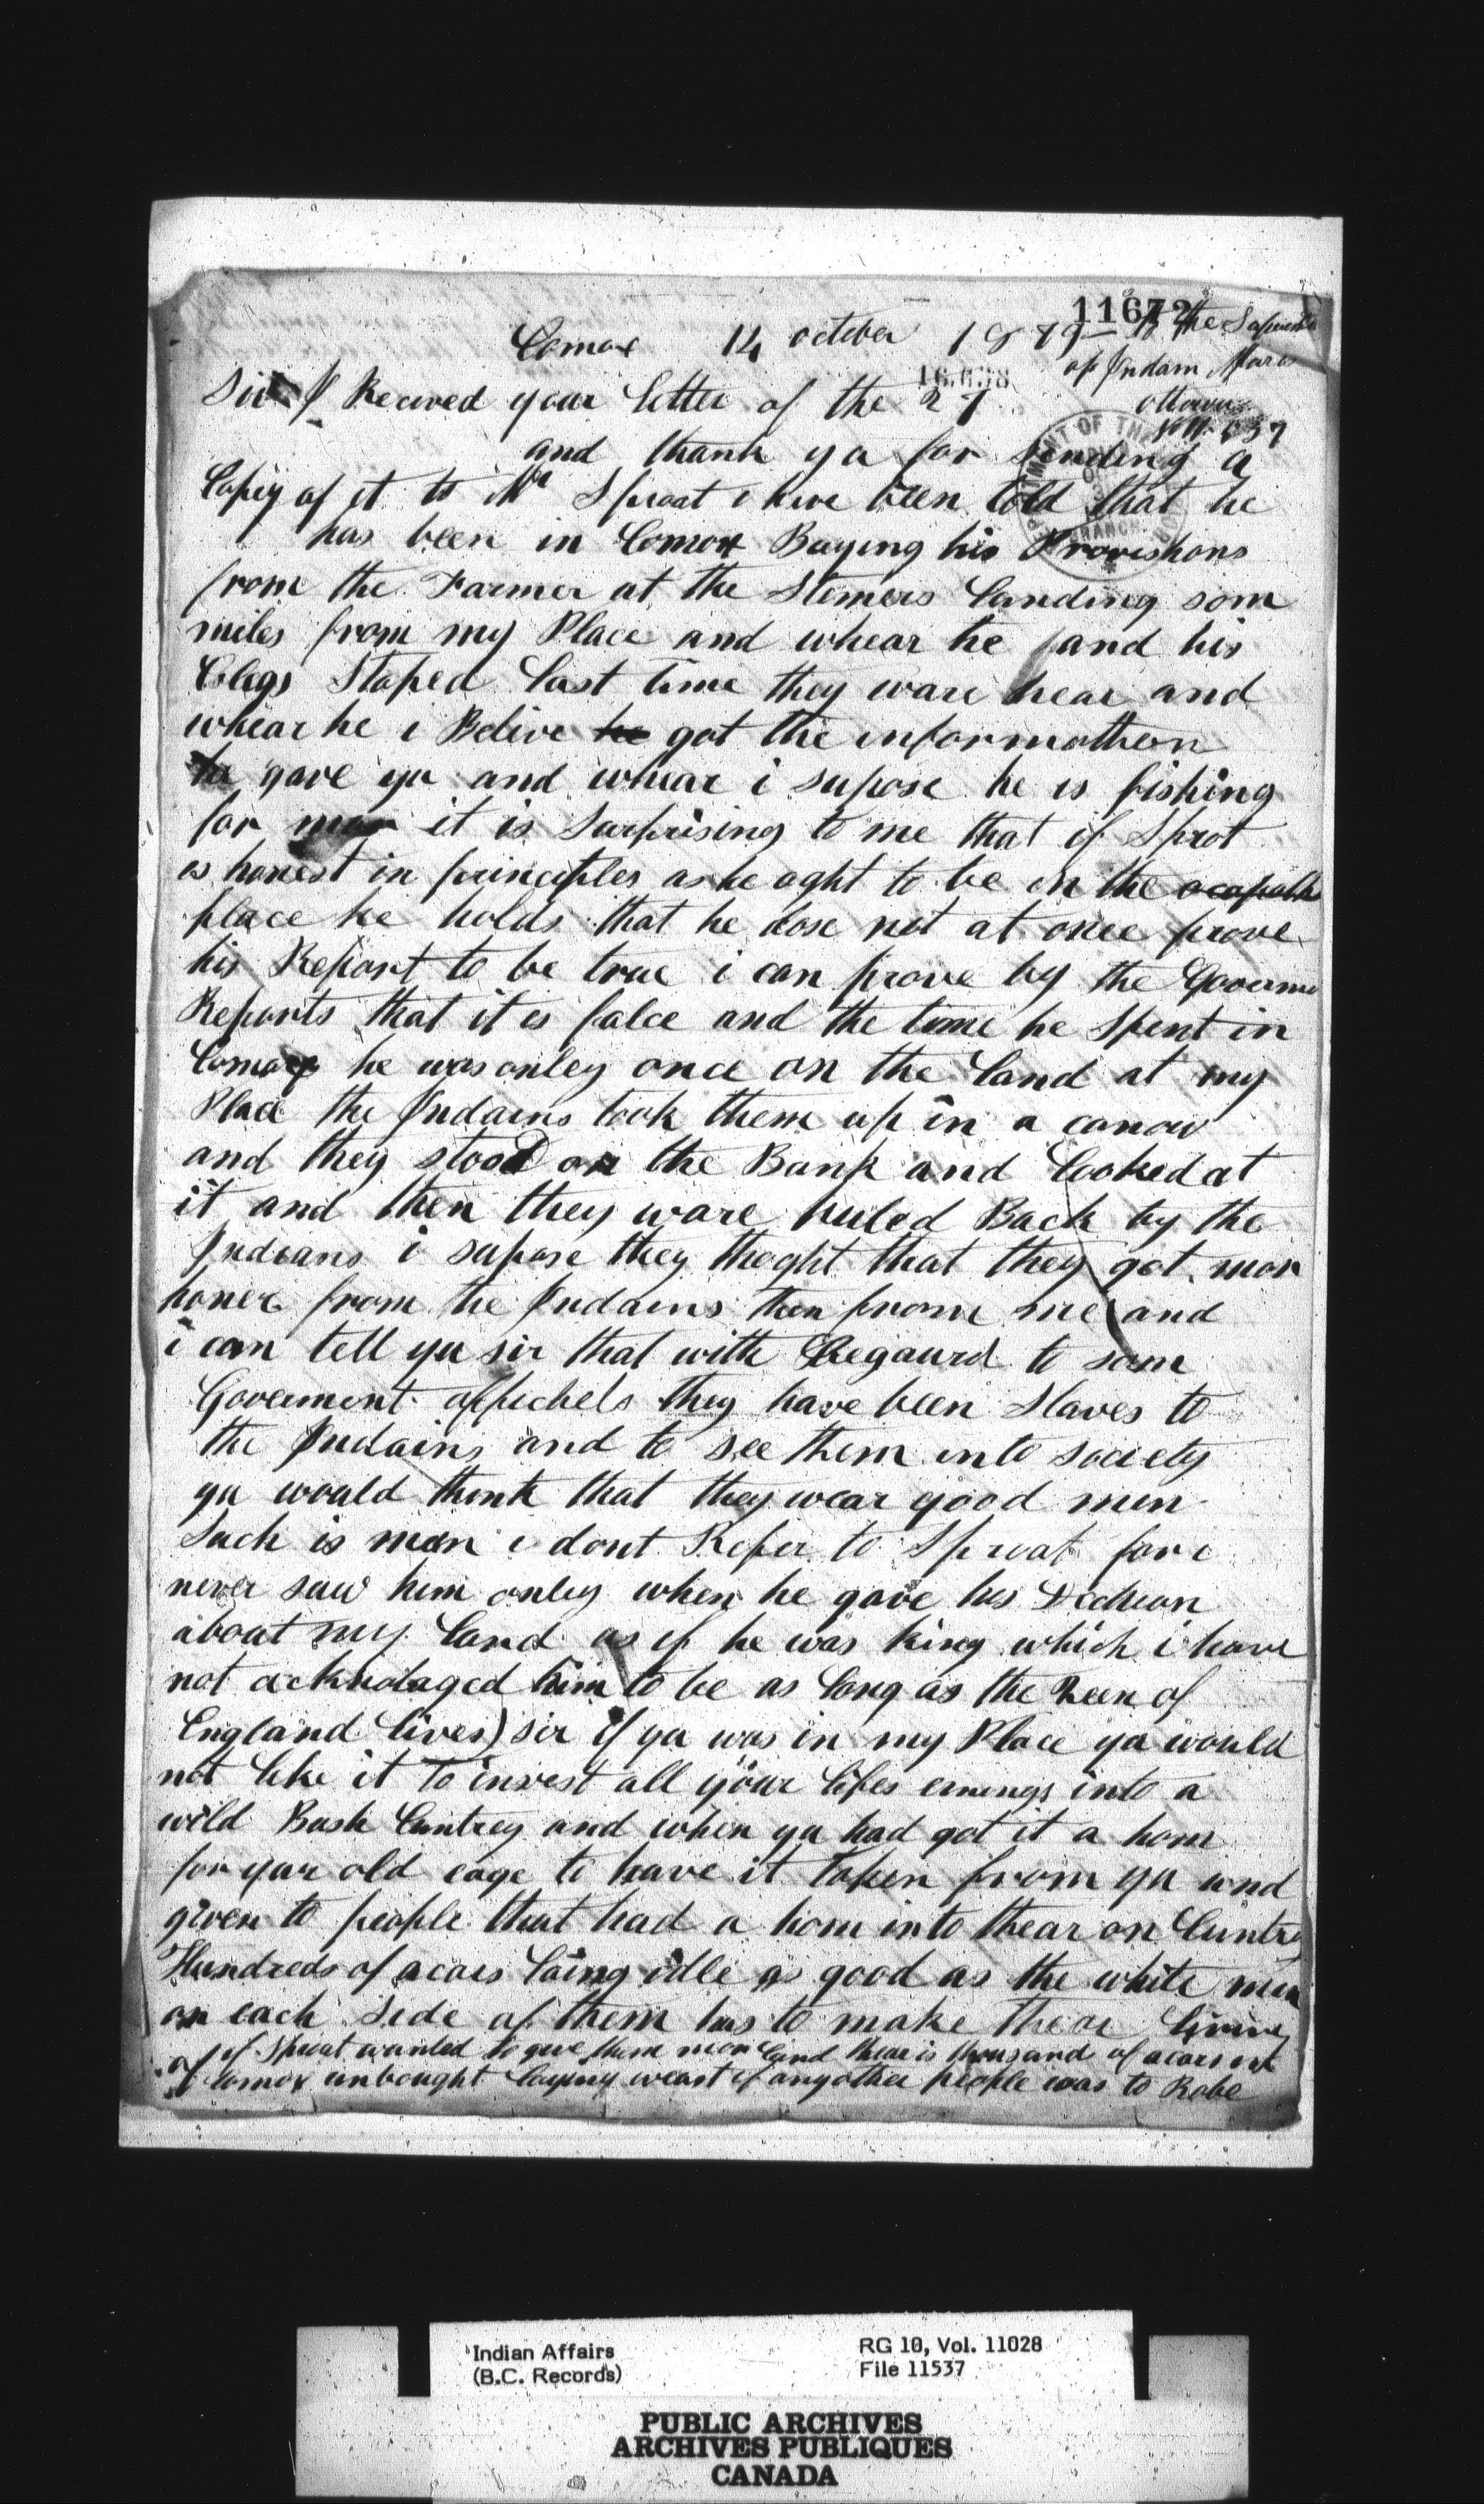 11672
Comox 14 october 1879 To the
of Indain
ottawa
16.038
Sir I Recived your letter of the 27
and thank ya for sending a
Copiy of it to Mr Sproat i have been told that he
has been in Comox Buying his Provishons
from the Farmer at the Stemers Landing som
miles from my Place and whear he and his
Clegs Staped last time they ware hear and
whear he i Belive he got the informathon
he gave yu and whear i supose he is fishing
for mor it is Surprising to me that if Sprot
is honest in principles as he oght to be in the
place he holds that he dose not at once prove
his Report to be true i can prove by the
Reports that it is falce and the time he Spent in
Comox he was onley once on the Land at my
Place the Indains took them up in a canow
and they stood on the Bank and Looked at
it and then they ware Back by the
Indians i supose they thoght that they got mor
honer from the Indains then from me and
i can tell yu sir that with Regaurd to som
Goverment offichels they have been Slaves to
the Indains and to see them into society
yu would think that they wear good men
Such is man i dont Refer to Sproat for i
never saw him onley when he gave his
about my Land as if he was king which i have
not acknolaged him to be as long as the Keen of
England lives) sir if yu was in my Place ya would
not like it to invest all your lifes ernings into a
wild Bush Cuntrey and when yu had got it a hom
for yur old eage to have it taken from yu and
given to people that had a hom into thear on Cuntrey
Hundreds of acors laing idle as good as the white men
on each side of them has to make thear living
of if Sproat wanted to give them mor Land thear is thousands of acors in
Comox unbought laying weast if anyother people was to Robe
Indian Affairs
(B.C. Records)
RG 10, Vol. 11028
File 11537
PUBLIC ARCHIVES
ARCHIVES PUBLIQUES
CANADA